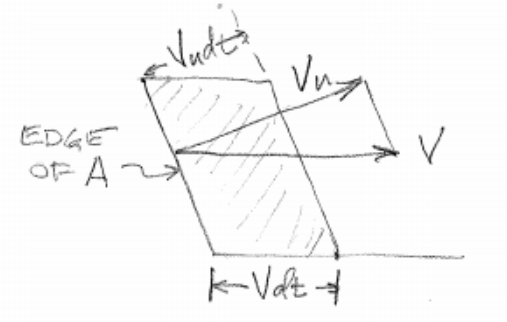 Vndt
Vn
EDGE
OF A
V
Vdt